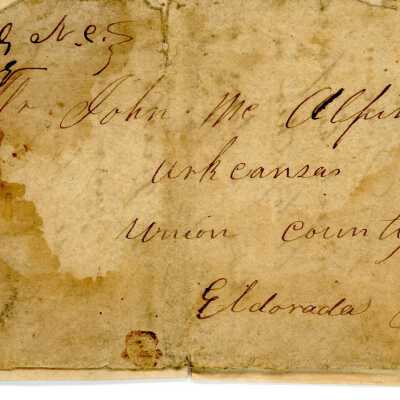 N.C.
Mr John Mc Alpin
Arkeansas
Union County
Eldorada